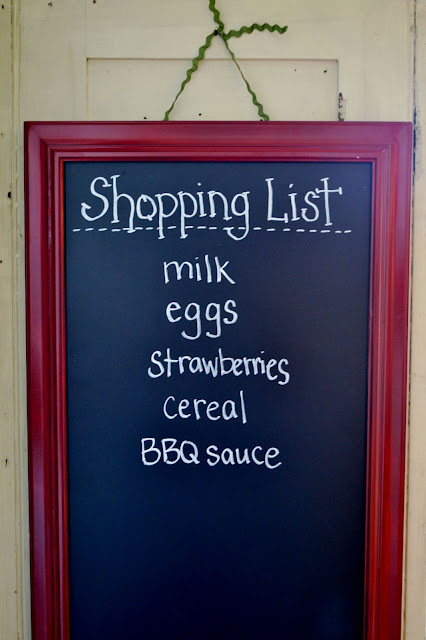 Shopping List
milk
eggs
strawberries
cereal
BBQ sauce